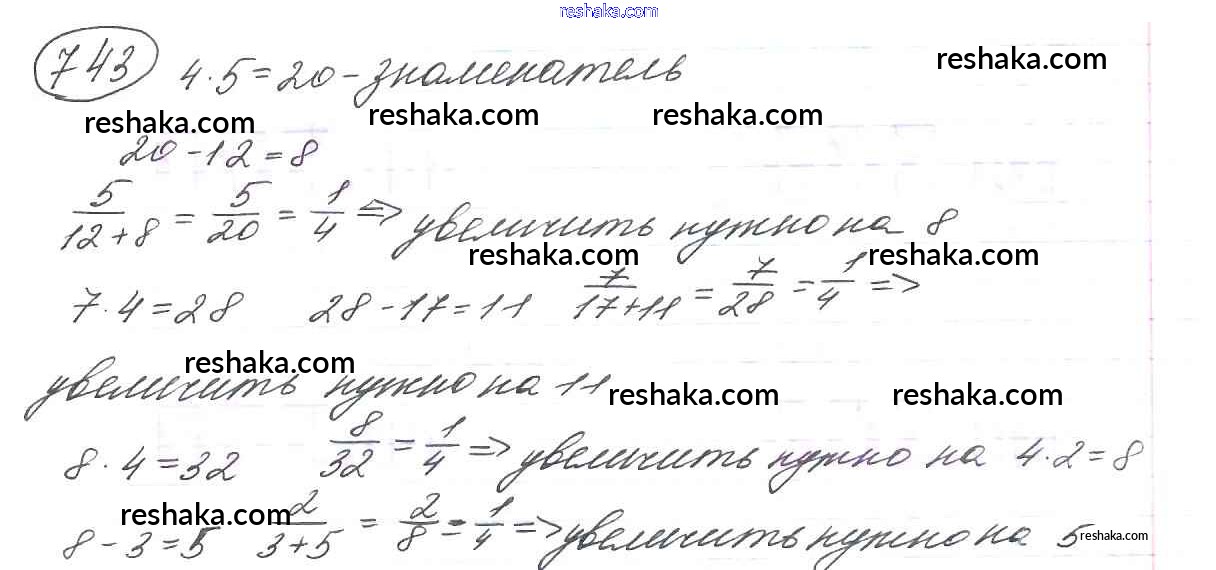 reshaka.com
743 4·5=20-знаменатель reshaka.com
reshaka.com reshaka.com reshaka.com
20-12=8
5/(12+8) = 5/20 = 1/4 => увеличить нужно на 8
reshaka.com reshaka.com
7·4=28 28-17=11 7/(17+11) = 7/28 = 1/4 =>
reshaka.com
увеличить нужно на 11 reshaka.com reshaka.com
8·4=32 8/32 = 1/4 => увеличить нужно на 4·2=8
reshaka.com
8-3=5 2/(3+5) = 2/8 = 1/4 => увеличить нужно на 5 reshaka.com